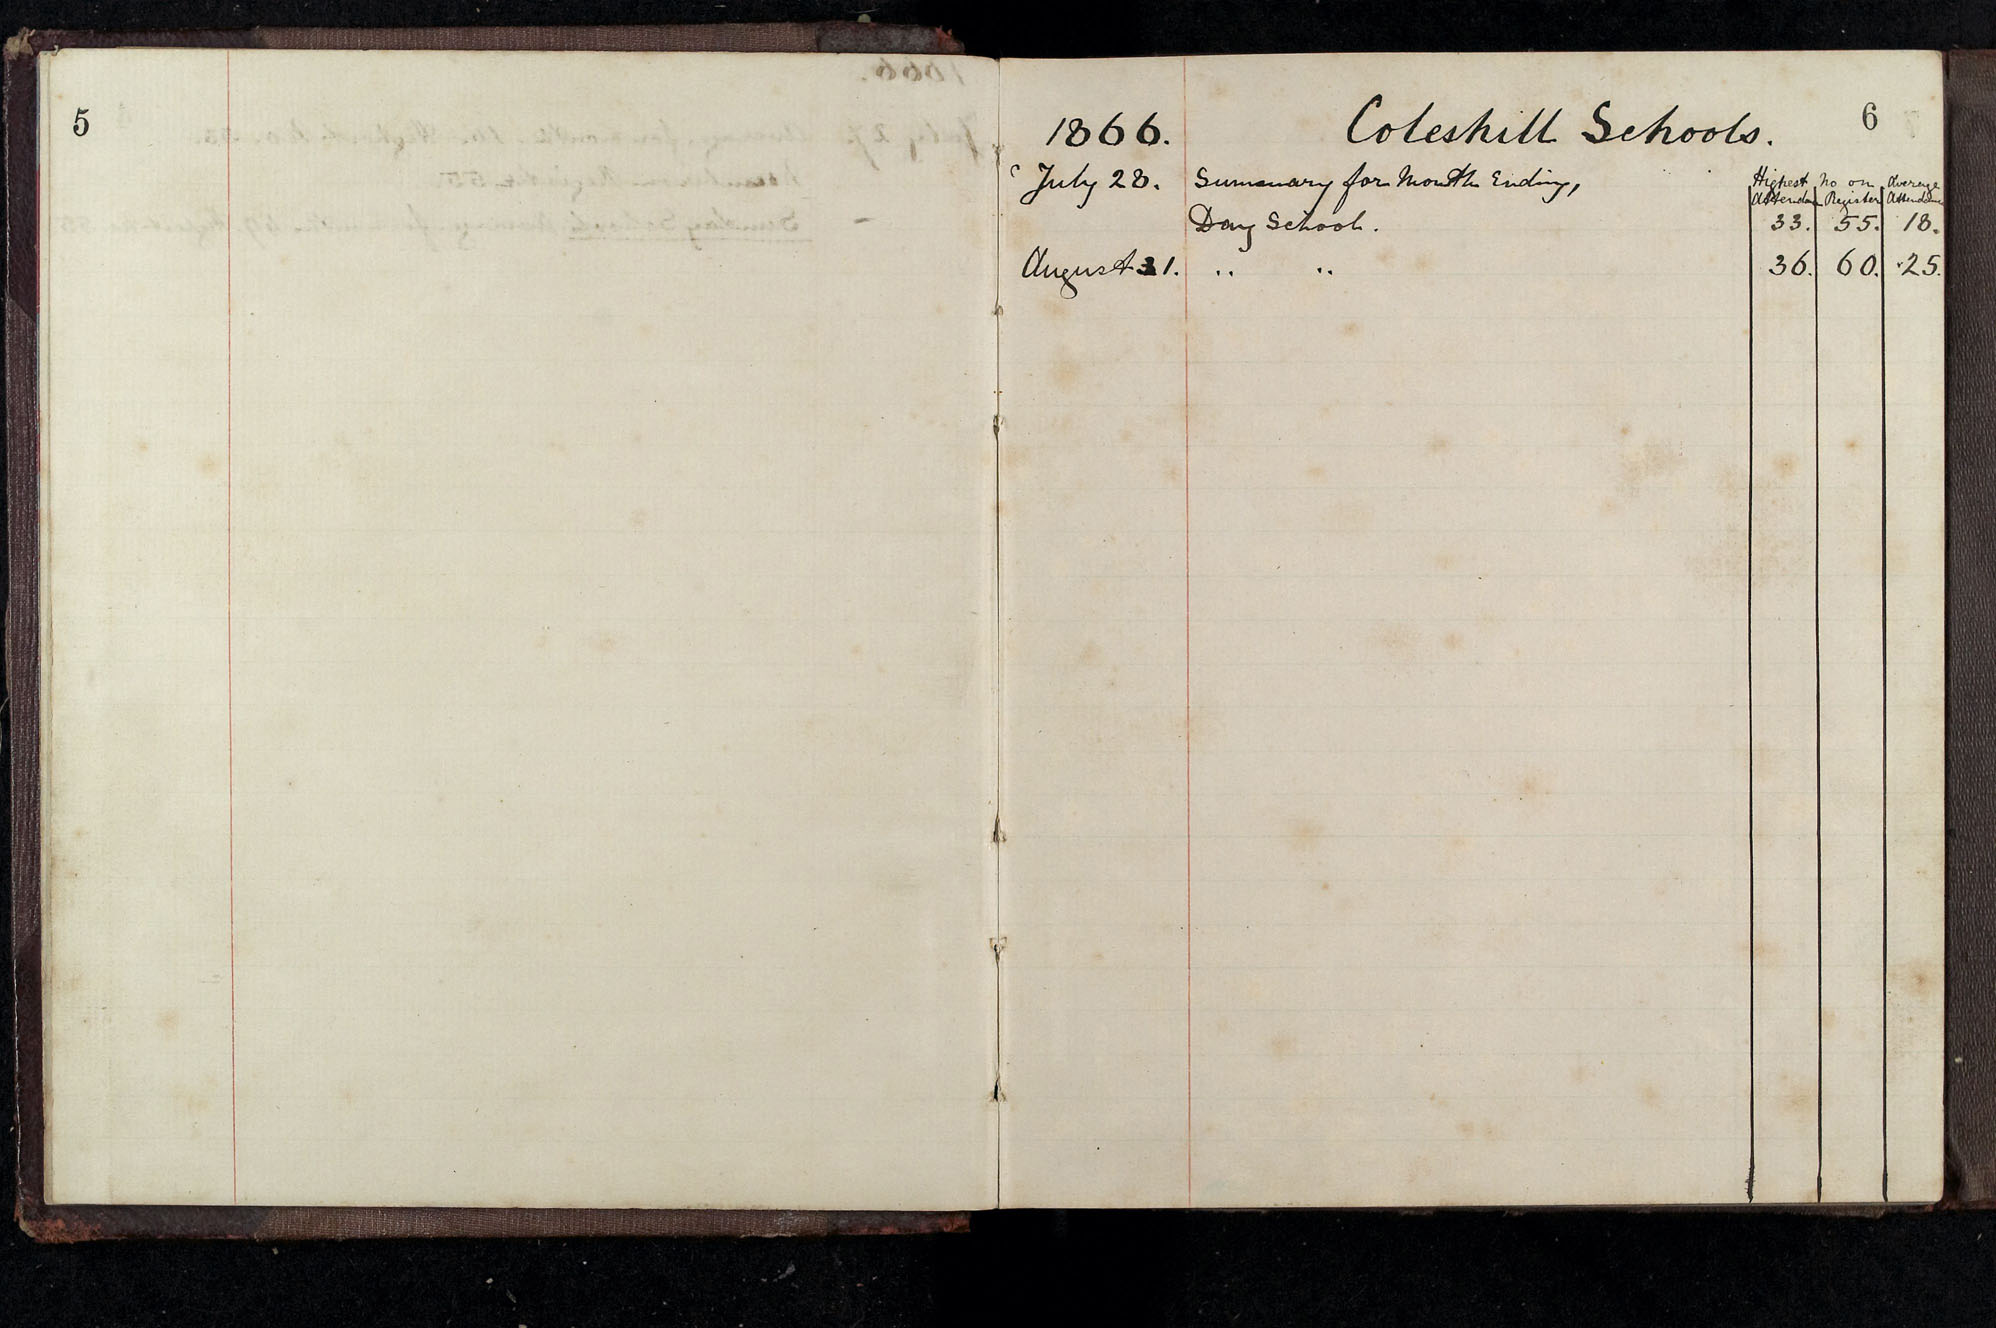 5
6
1866. Coleshill Schools.
July 28. Summary for Month Ending, Highest Attendan No on Register Average Attendance
Day School. 33. 55. 18.
August 31. " " 36. 60. 25.